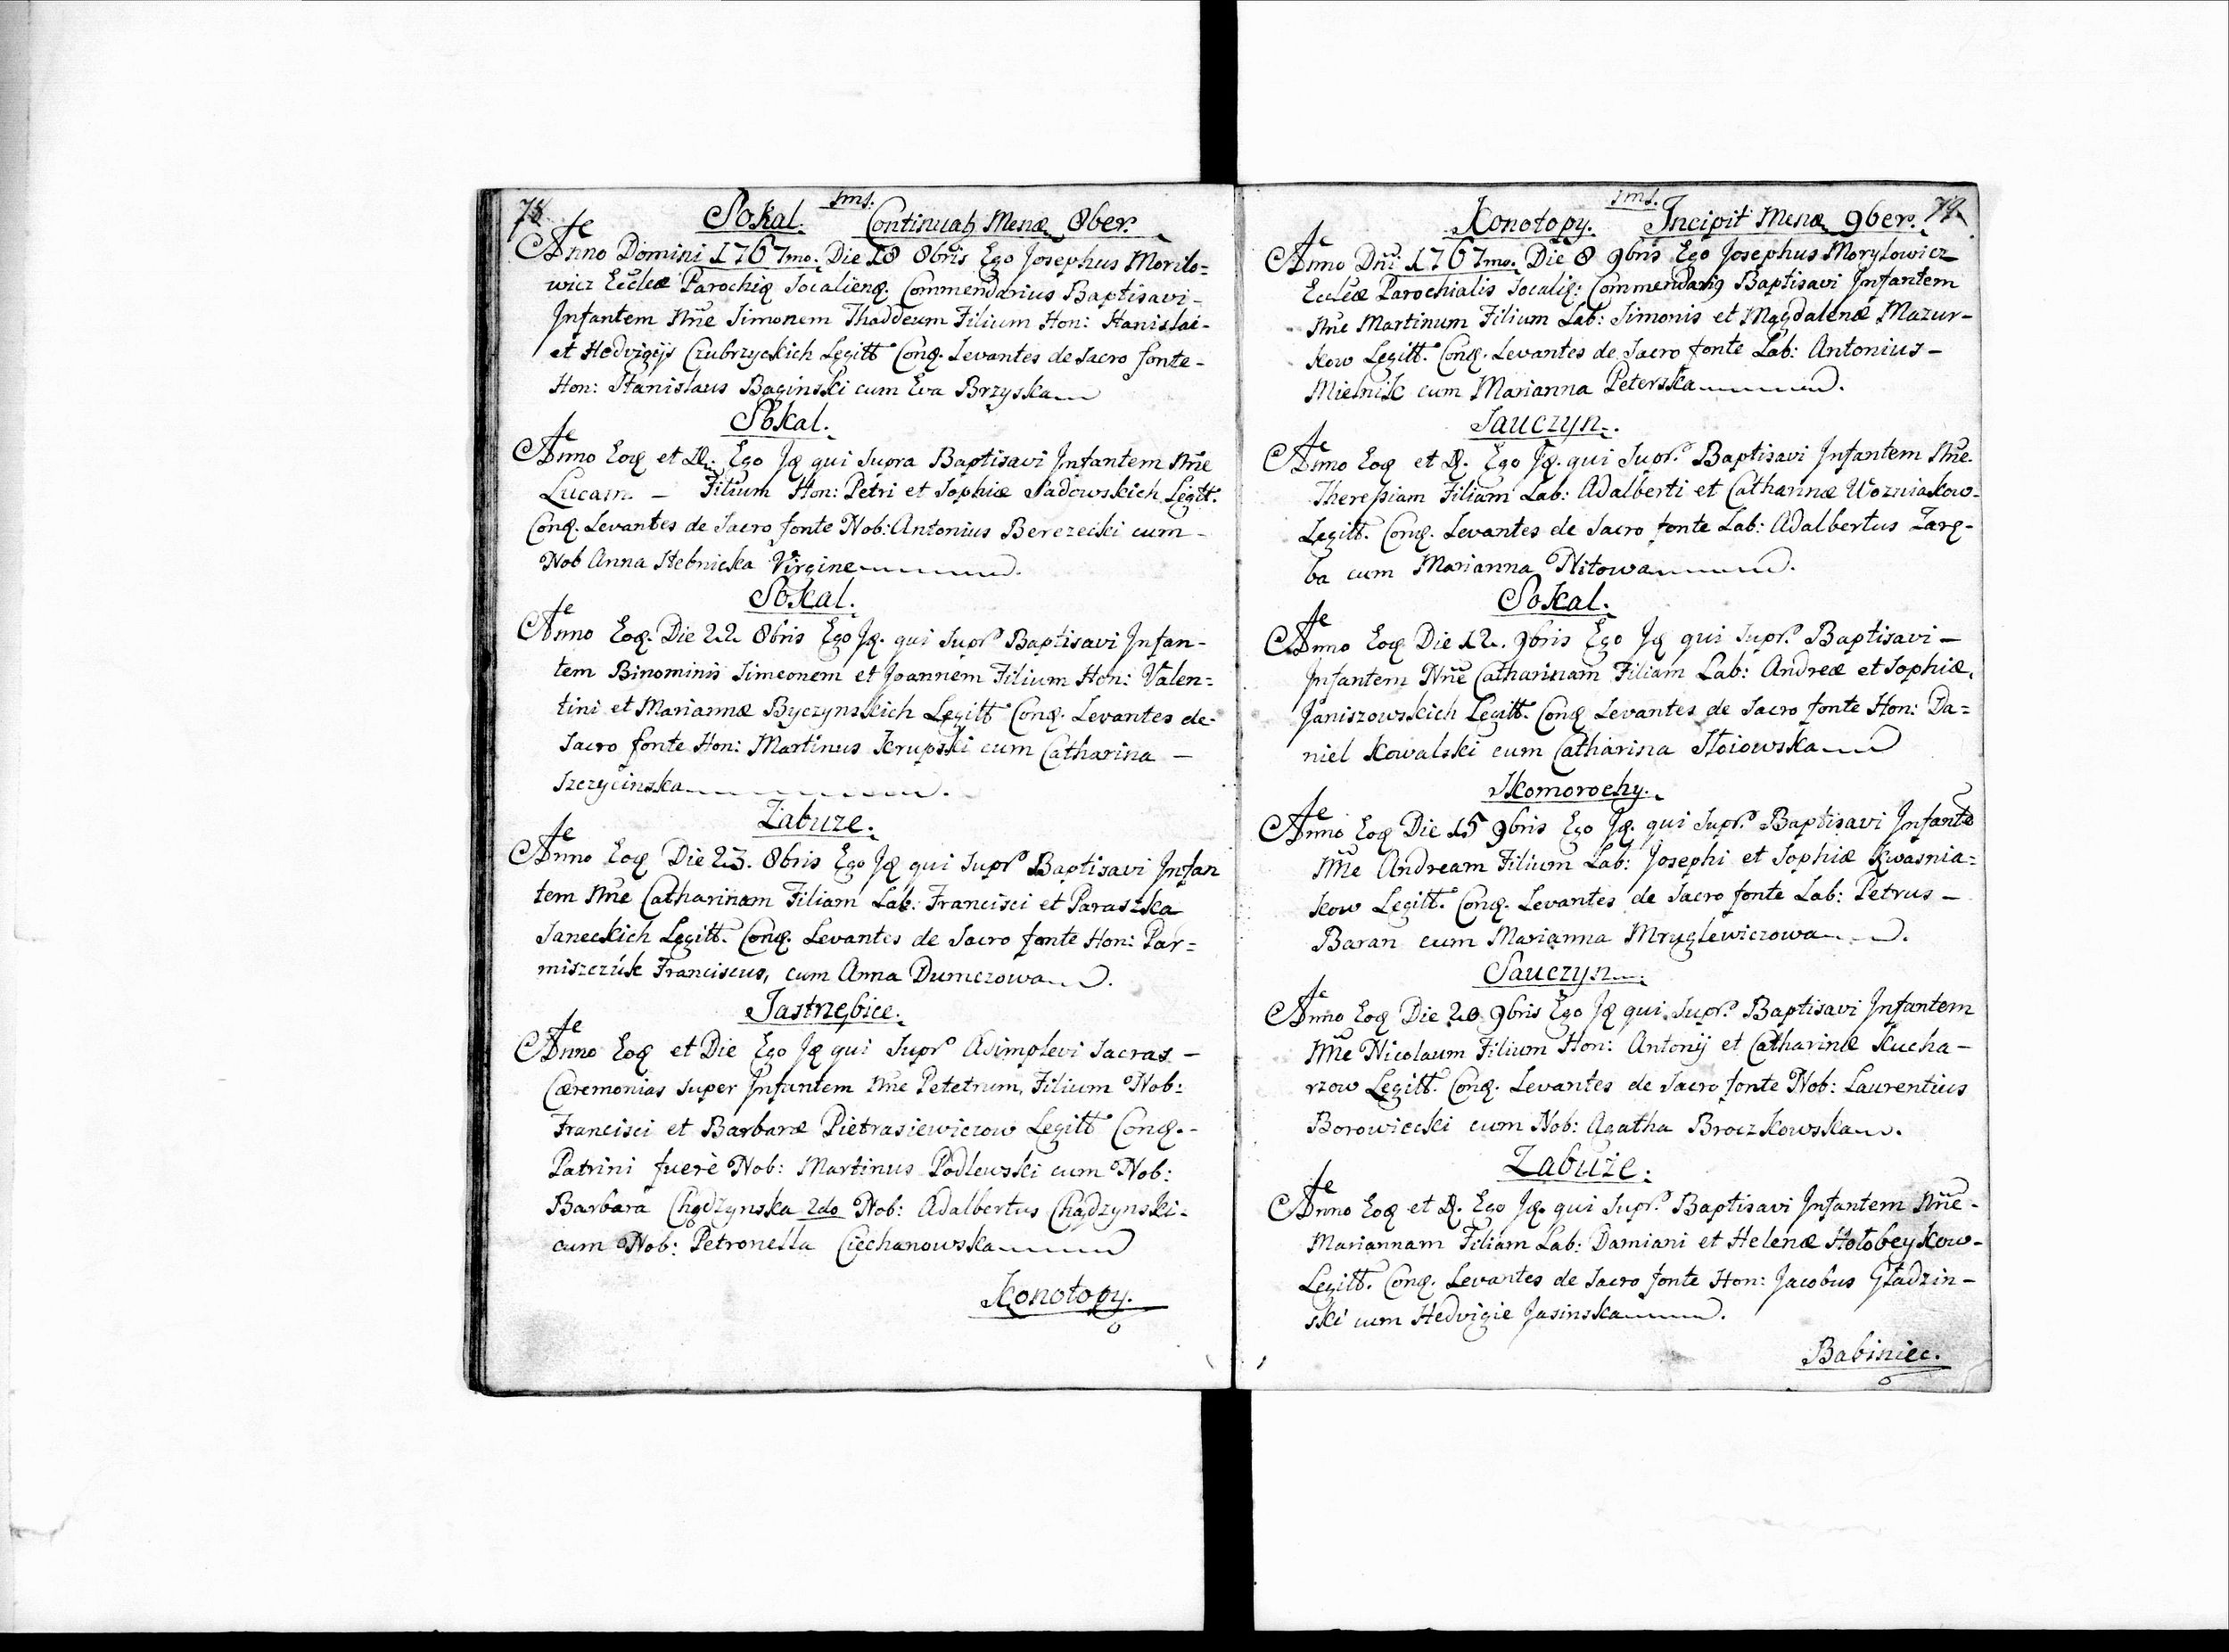 78 Sokal. 1ms. Continuat Mensæ 8ber.
Anno Domini 1767mo. Die 18 8bris Ego Josephus Morilo=
wicz Eccleæ Parochiq Socalienq. Commendarius Baptisavi-
Infantem Nne Simonem Thaddeum Filium Hon: Stanislai-
et Hedvigijs Czubrzyckich Legitt Conq. Levantes de Sacro fonte-
Hon: Stanislaus Baginski cum Eva Brzyska
Sokal.
Anno Eoq et D. Ego Jq qui Supra Baptisavi Infantem Nne
Lucam. – Filium Hon: Petri et Sophiæ Sadowskich Legitt.
Conq. Levantes de Sacro fonte Nob: Antonius Berezecki cum-
Nob Anna Stebnicka Virgine
Sokal.
Anno Eoq. Die 22 8bris Ego Jq. qui Supr Baptisavi Infan-
tem Binominis Simeonem et Joannem Filium Hon: Valen=
tini et Mariannæ Byczynskich Legitt Conq. Levantes de-
Sacro fonte Hon: Martinus Krupski cum Catharina –
Szczycinska
Zabuze.
Anno Eoq Die 23. 8bris Ego Jq qui Supr Baptisavi Infan
tem Nne Catharinam Filiam Lab: Francisci et Paraszka
Janeckich Legitt. Conq. Levantes de Sacro fonte Hon: Par=
miszczúk Franciscus, cum Anna Dumczowa
Jastrzębice.
Anno Eoq et Die Ego Jq qui Supr Adimplevi Sacras –
Cæremonias super Infantem Nne Petetrum, Filium Nob:
Francisci et Barbaræ Pietrasiewiczow Legitt Conq.-
Patrini fuerè Nob: Martinus Podlewski cum Nob:
Barbara Chądzynska 2do Nob: Adalbertus Chądzynski-
cum Nob: Petronella Ciechanowska
Konotopy.
Konotopy. 1ms. Incipit Mensæ 9ber. 79
Anno Dni 1767mo. Die 8 9bris Ego Josephus Morylowicz
Eccleæ Parochialis Socaliq: Commendariq Baptisavi Infantem
Nne Martinum Filium Lab: Simonis et Magdalenæ Mazur-
kow Legitt. Conq. Levantes de Sacro fonte Lab: Antonius –
Mielnik cum Marianna Peterska
Sauczyn.
Anno Eoq et D. Ego Jq. qui Supr. Baptisavi Infantem Nne.
Theresiam Filiam Lab: Adalberti et Catharinæ Wozniakow-
Legitt. Conq. Levantes de Sacro fonte Lab: Adalbertus Zarę-
ba cum Marianna Nitowa
Sokal.
Anno Eoq Die 12. 9bris Ego Jq qui Supr. Baptisavi –
Infantem Nne Catharinam Filiam Lab: Andreæ et Sophiæ,
Janiszowskich Legitt. Conq Levantes de Sacro fonte Hon: Da=
niel Kowalski cum Catharina Stoiowska
Skomorochy.
Anno Eoq Die 15 9bris Ego Jq. qui Supr. Baptisavi Infante
Nne Andream Filium Lab: Josephi et Sophiæ Kwasnia=
kow Legitt. Conq. Levantes de Sacro fonte Lab: Petrus –
Baran cum Marianna Mryglewiczowa
Sauczyn.
Anno Eoq Die 20 9bris Ego Jq qui Supr. Baptisavi Infantem
Nne Nicolaum Filium Hon: Antonij et Catharinæ Kucha-
rzow Legitt. Conq. Levantes de Sacro fonte Nob: Laurentius
Borowiecki cum Nob: Agatha Broczkowska
Zabuże.
Anno Eoq et D. Ego Jq. qui Supr. Baptisavi Infantem Nne-
Mariannam Filiam Lab: Damiani et Helenæ Hołobeykow-
Legitt. Conq. Levantes de Sacro fonte Hon: Jacobus Gładzin-
ski cum Hedvigie Jasinska
Babiniec.